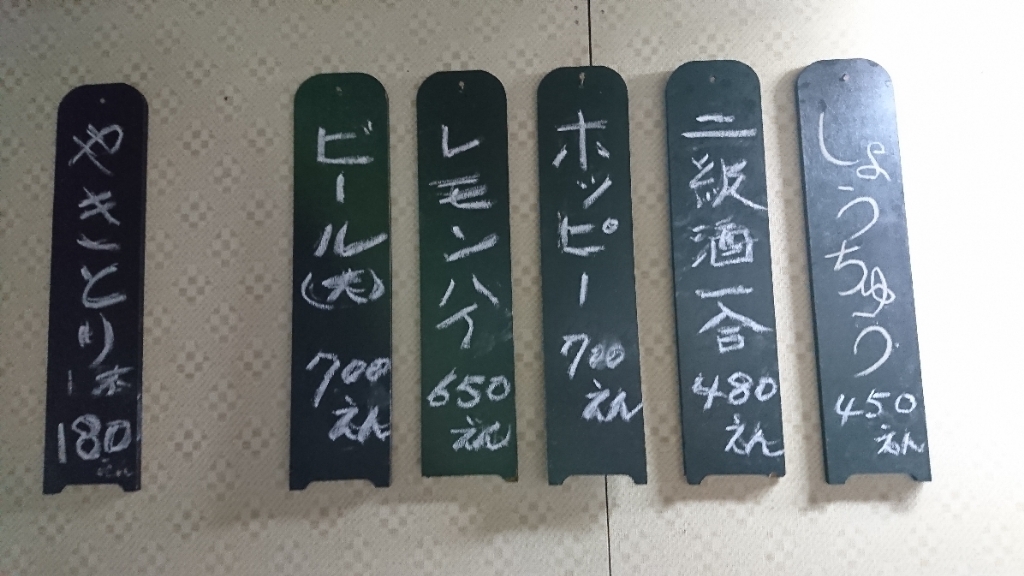 やきとり
一本
180
えん
ビール
(大)
700
えん
レモンハイ
650
えん
ホッピー
700
えん
二級酒一合
480
えん
しょうちゅう
450
えん